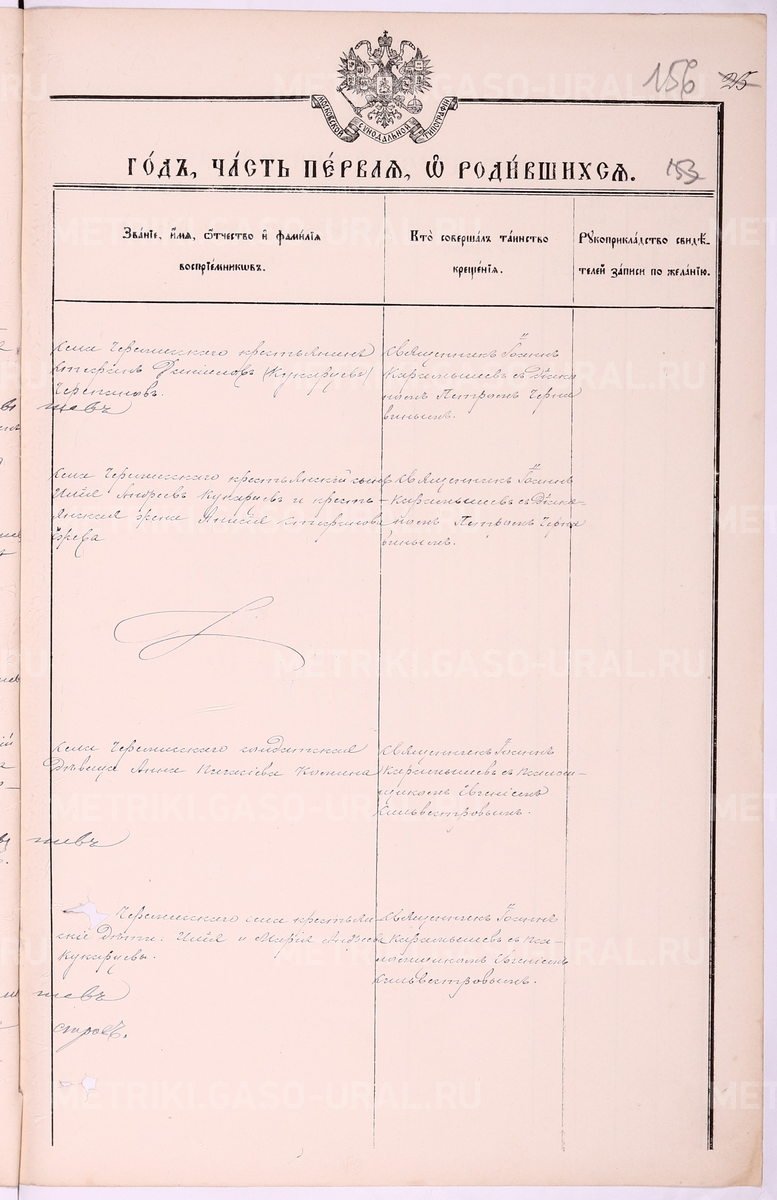 156 25
МОСКОВСКОЙ СѴНОДАЛЬНОЙ ТИПОГРАФІИ
ГО́ДЪ, ЧА́СТЬ ПЕ́РВАѦ, Ѽ РОДИ́ВШИХСѦ.
153
Зва́нїе, и́мѧ, ѻ҆́тчество и҆ фами́лїѧ
воспрїе́мникѡвъ.
Кто̀ соверша́лъ та́инство
креще́нїѧ.
Рꙋкоприкла́дство свидѣ́-
телей за́писи по жела́нїю.
села Черемисскаго крестьянинъ
Данииловъ (Кукарцевъ)
Черепановъ.
Священникъ Іоаннъ
Карамышевъ съ діако-
номъ Петромъ Черна
винымъ.
села Черемисскаго крестьянскій сынъ
Илія Андреевъ Кукарцевъ и кресть-
янская жена Анисія
Священникъ Іоаннъ
Карамышевъ съ діако-
номъ Петромъ Черна
винымъ.
села Черемисскаго солдатская
дѣвица Анна
Священникъ Іоаннъ
Карамышевъ съ псалом-
щикомъ Евгеніемъ
Сильвестровымъ.
Черемисскаго села крестьян
скіе дѣти: Илія и Марія Андреевы
Кукарцевы.
Священникъ Іоаннъ
Карамышевъ съ пса-
ломщикомъ Евгеніемъ
Сильвестровымъ.
METRIKI.GASO-URAL.RU
METRIKI.GASO-URAL.RU
METRIKI.GASO-URAL.RU